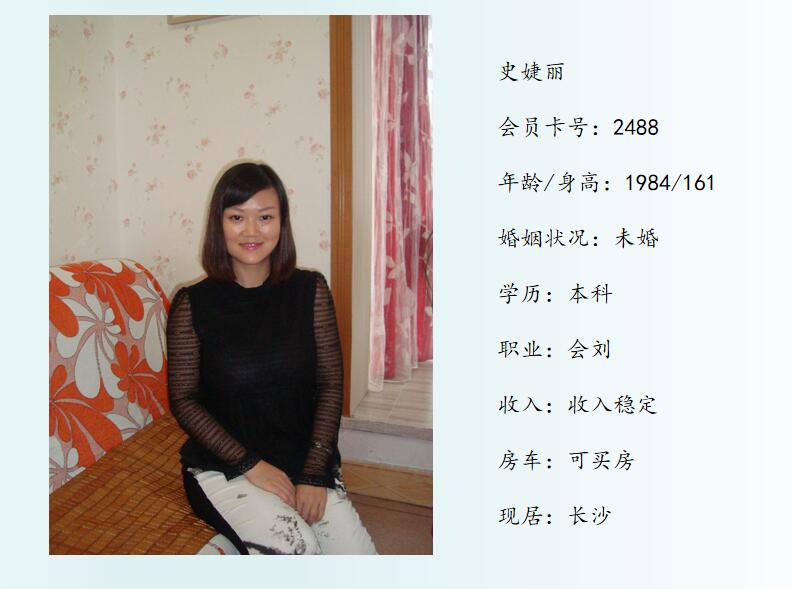 史婕丽
会员卡号：2488
年龄/身高：1984/161
婚姻状况：未婚
学历：本科
职业：会刘
收入：收入稳定
房车：可买房
现居：长沙